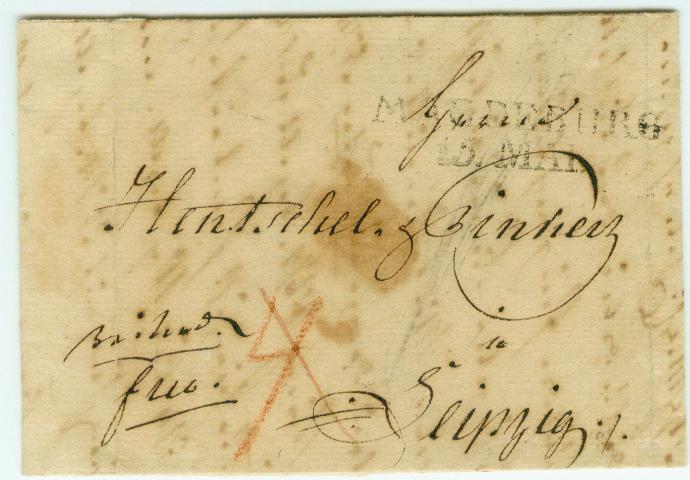 MAGDEBURG
13. MAI
Hentschel & Pinkert
à
Leipzig
frco.
4